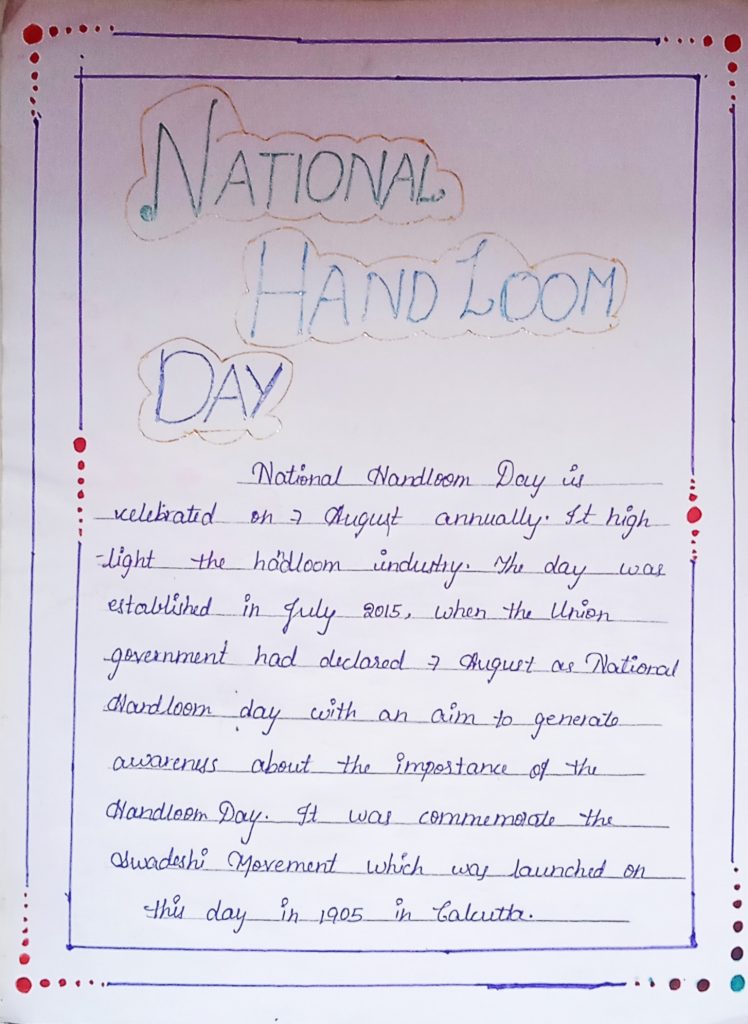 NATIONAL
HAND LOOM
DAY
National Handloom Day is
celebrated on 7 August annually. It high
-light the hadloom industry. The day was
established in July 2015, when the Union
government had declared 7 August as National
Handloom day with an aim to generate
awareness about the importance of the
Handloom Day. It was commemorate the
Swadeshi Movement which was launched on
this day in 1905 in Calcutta.